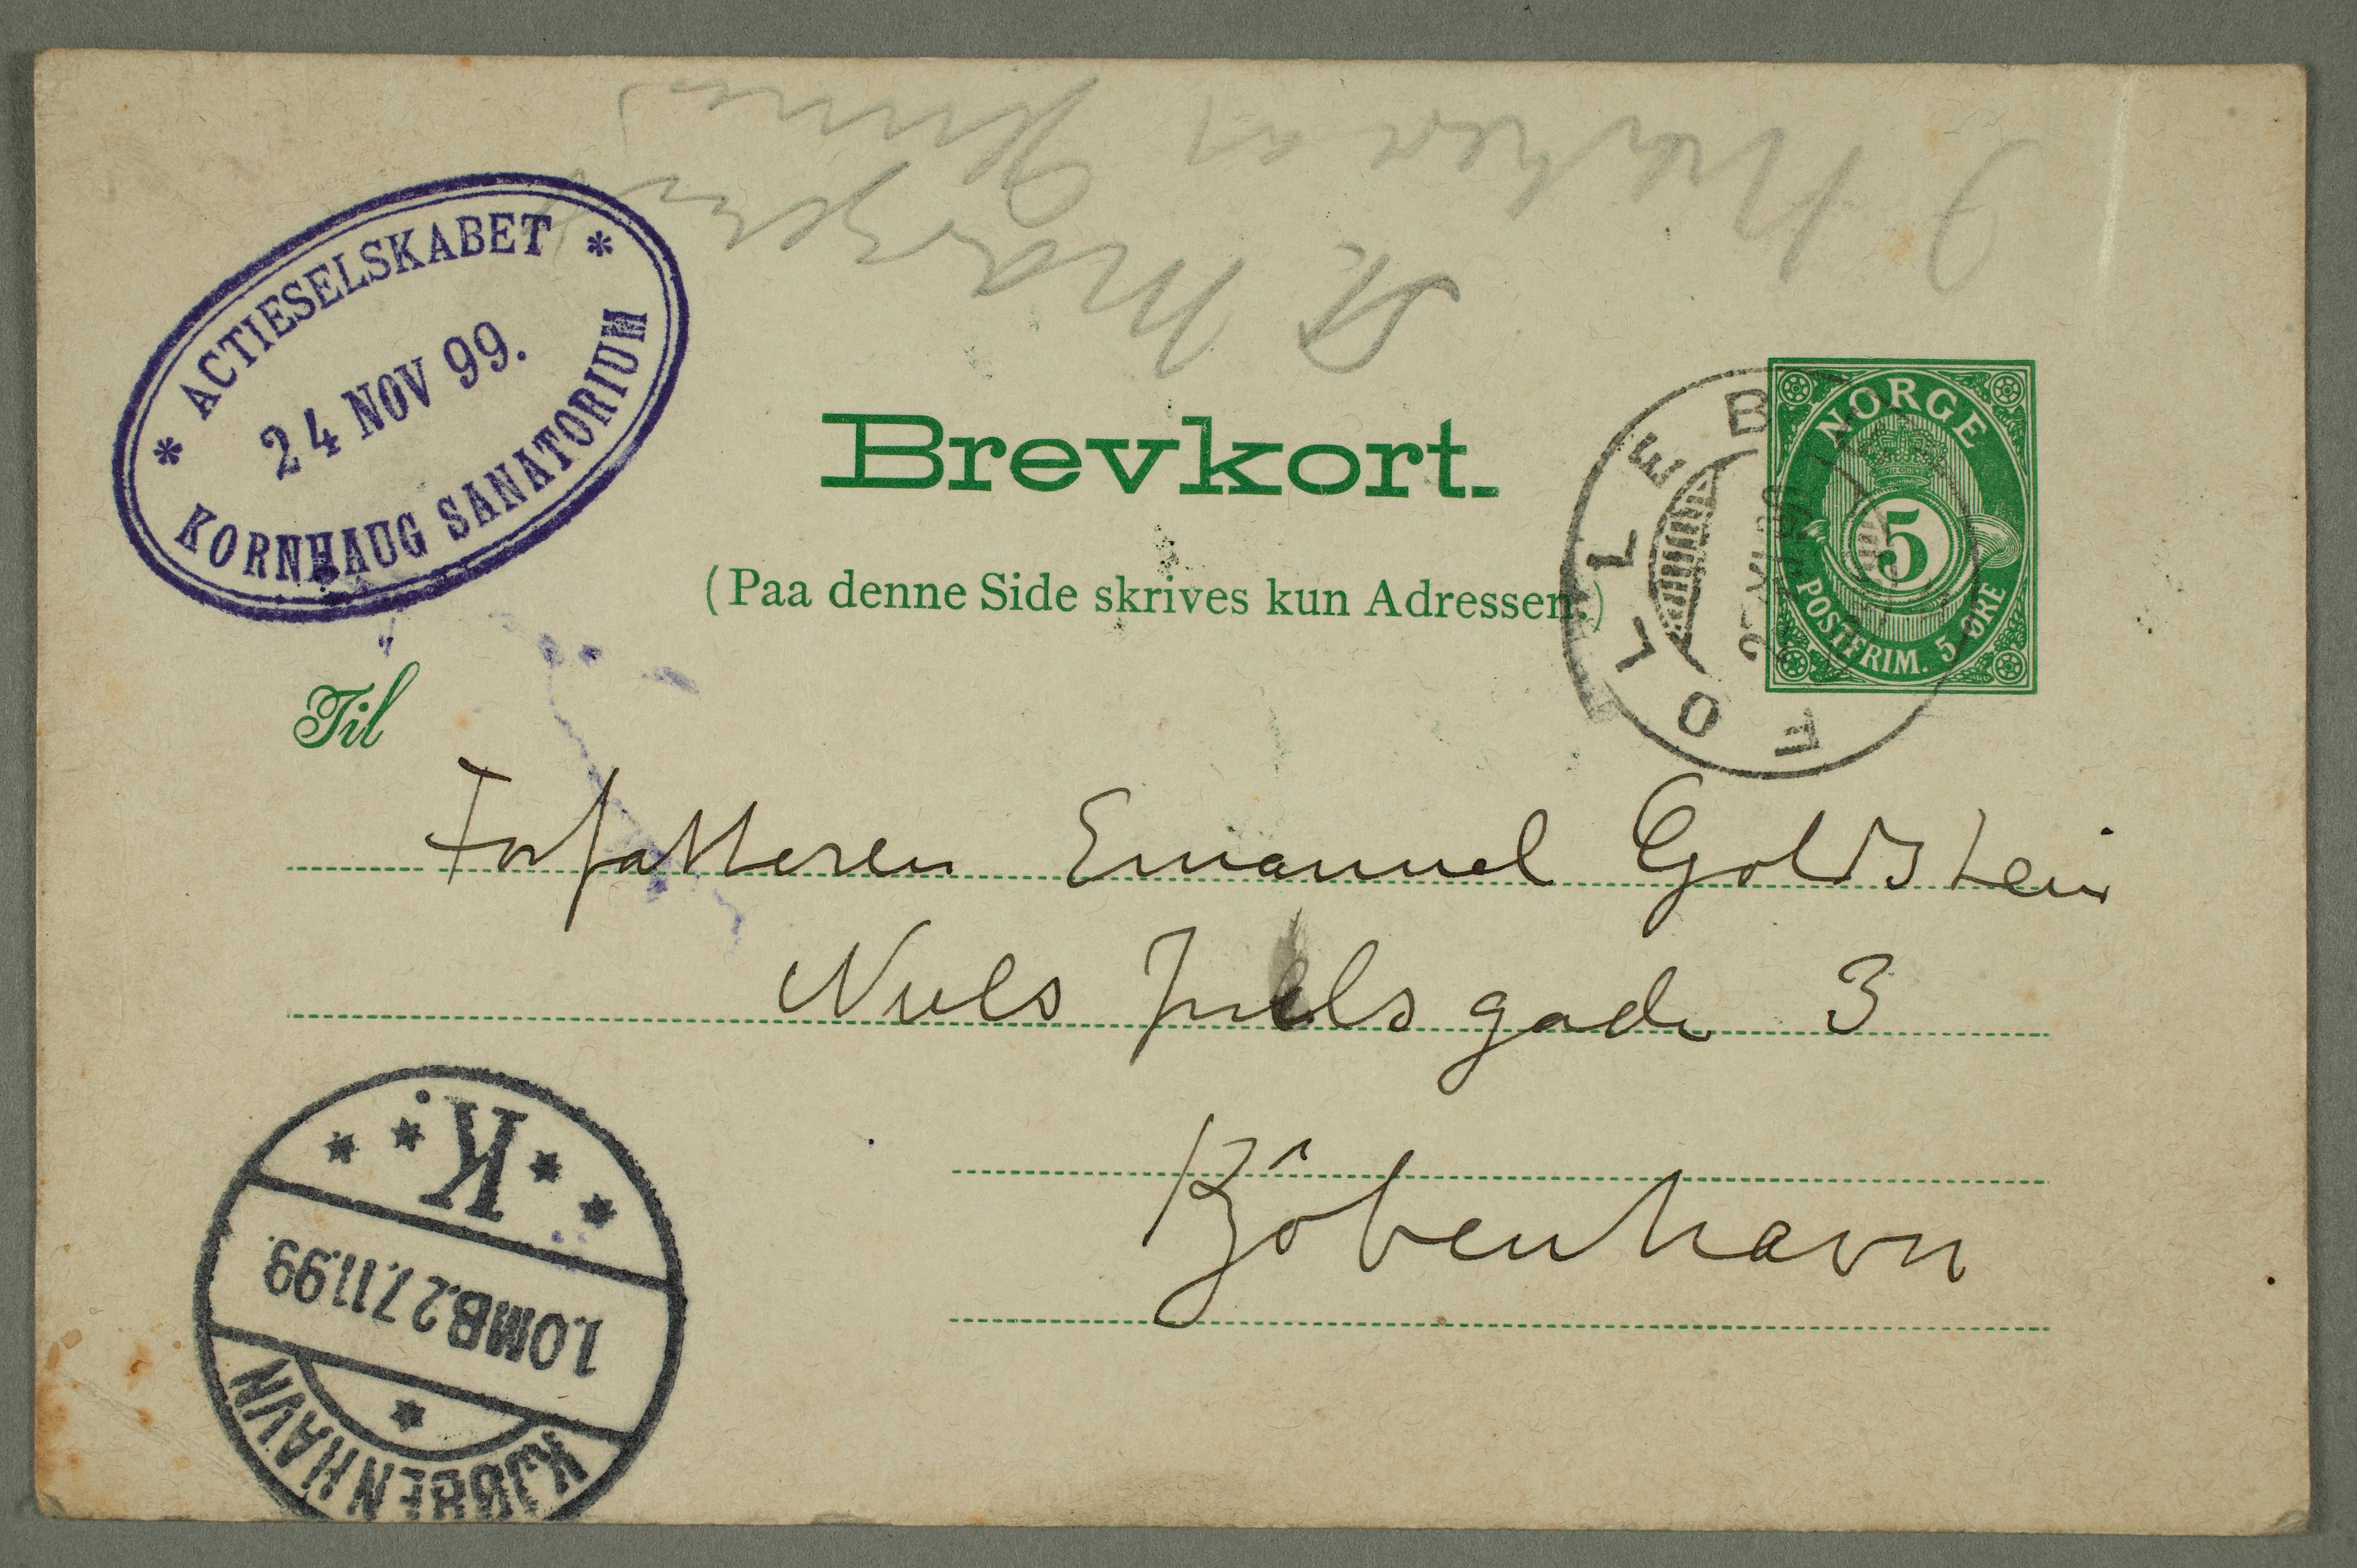 ACTIESELSKABET
24 NOV 99.
KORNHAUG SANATORIUM
Brevkort.
(Paa denne Side skrives kun Adressen.)
NORGE
5
POSTFRIM. 5 ØRE
FOLLEB
Til
Forfatteren Emanuel Goldstein
Niels Juels gade 3
Kjöbenhavn
K.
1.OMB.27.11.99.
KJØBENHAVN